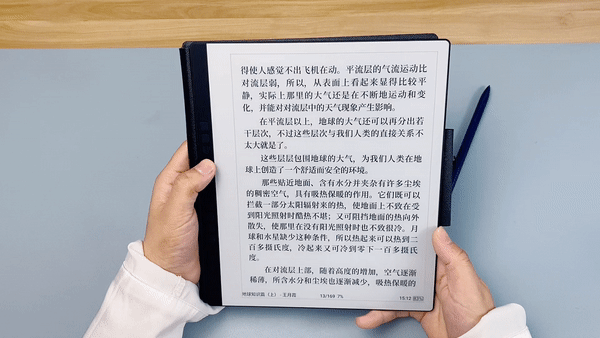 得使人感觉不出飞机在动。平流层的气流运动比
对流层弱，所以，从表面上看起来显得比较平
静，实际上那里的大气还是在不断地运动和变
化，并能对对流层中的天气现象产生影响。
在平流层以上，地球的大气还可以再分出若
干层次，不过这些层次与我们人类的直接关系不
太大就是了。
这些层层包围地球的大气，为我们人类在地
球上创造了一个舒适而安全的环境。
那些贴近地面，含有水分并夹杂有许多尘埃
的稠密空气，具有吸热保暖的作用。它们既可以
拦截一部分太阳辐射来的热，使地面上不致在受
到阳光照射时酷热不堪；又可阻挡地面的热向外
散失，使那里在没有阳光照射时也不致很冷。月
球和水星缺少这种条件，所以热起来可以热到二
百多摄氏度，冷起来又可冷到零下一百多摄氏
度。
在对流层上部，随着高度的增加，空气逐渐
稀薄，所含水分和尘埃也逐渐减少，吸热保暖的
地球知识篇（上）-王月霞 13/169 7% 15:13